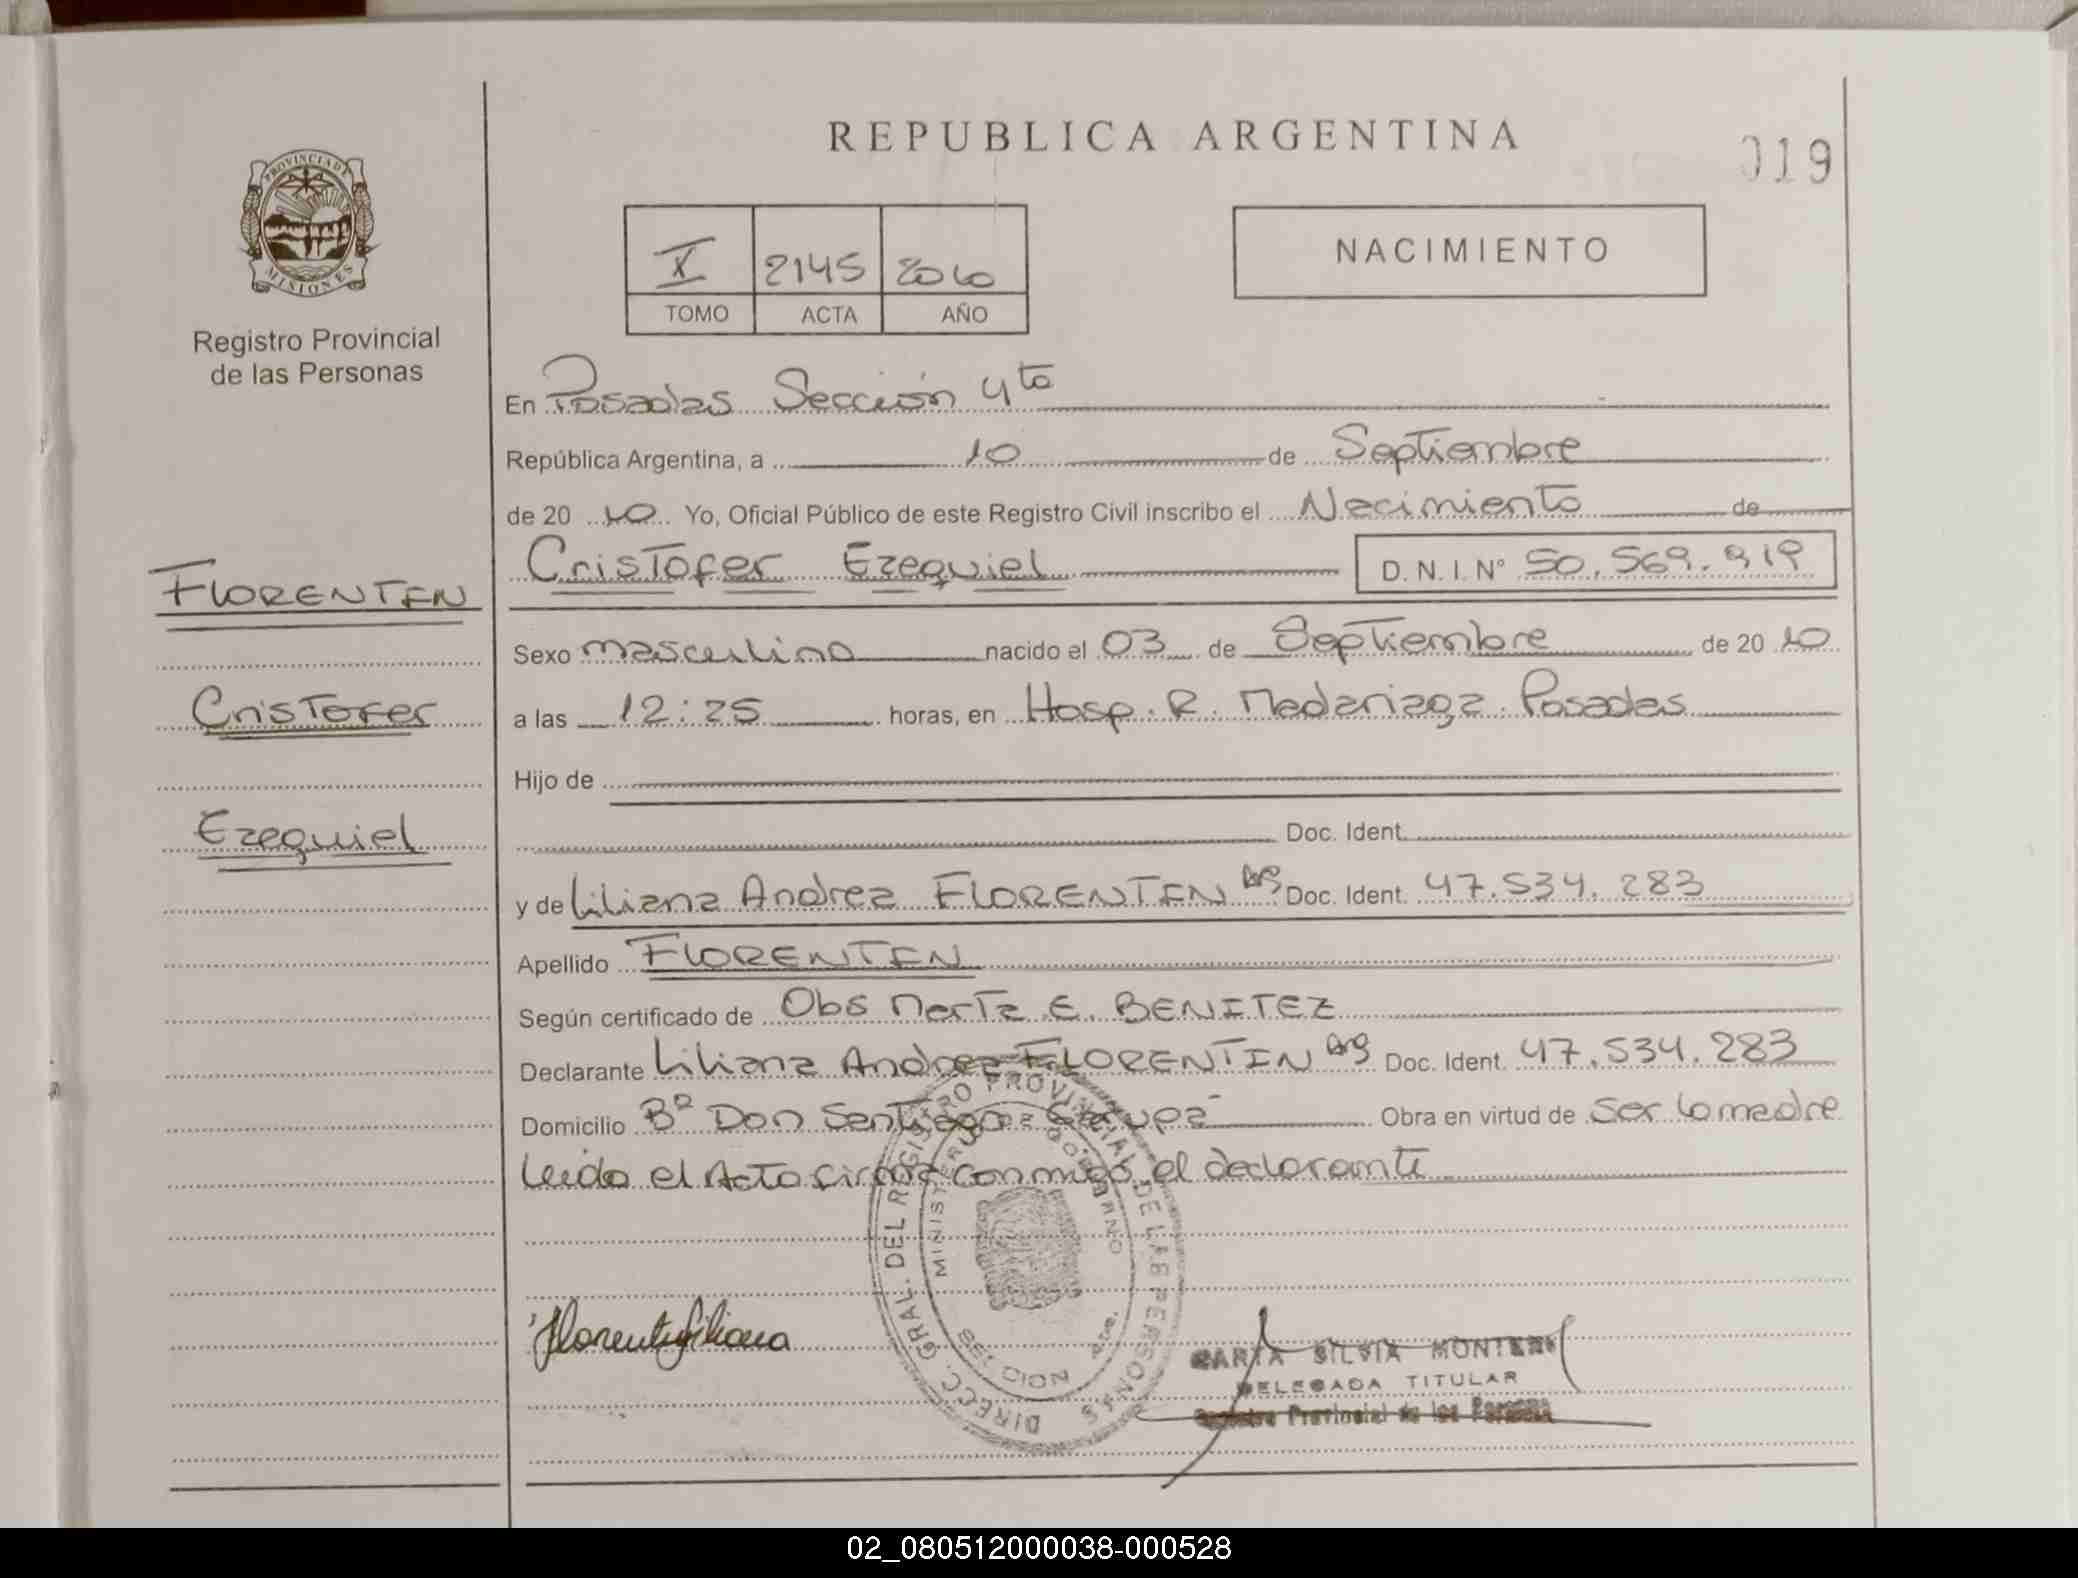 REPUBLICA ARGENTINA
019
PROVINCIA DE
MISIONES
Registro Provincial
de las Personas
X 2145 2010
TOMO ACTA AÑO
NACIMIENTO
En Posadas Sección 4ta
República Argentina, a 10 de Septiembre
de 20 10 Yo, Oficial Público de este Registro Civil inscribo el Nacimiento de
Cristofer Ezequiel D.N.I. N° 50.569.919
FLORENTIN
Cristofer
Ezequiel
Sexo masculino nacido el 03 de Septiembre de 20 10
a las 12:25 horas, en Hosp. R. Madariaga. Posadas
Hijo de
Doc. Ident.
y de Liliana Andrea FLORENTIN Arg Doc. Ident. 47.534.283
Apellido FLORENTIN
Según certificado de Obs Marta E. BENITEZ
Declarante Liliana Andrea FLORENTIN Arg Doc. Ident. 47.534.283
Domicilio Bº Don Santiago Garupá Obra en virtud de ser la madre
Leida el Acta firma conmigo el declarante
DIRECC. GRAL. DEL REGISTRO PROVINCIAL DE LAS PERSONAS
MINISTERIO GOBIERNO
Florentin Liliana
SILVIA MONTERO
DELEGADA TITULAR
Registro Provincial de las Personas
02_080512000038-000528